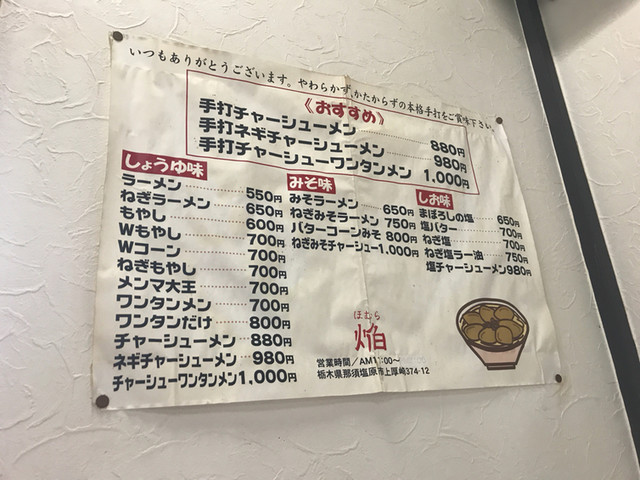 いつもありがとうございます。やわらかず、かたからずの本格手打をご賞味下さい。
《おすすめ》
手打チャーシューメン 880円
手打ネギチャーシューメン 980円
手打チャーシューワンタンメン 1,000円
しょうゆ味
ラーメン 550円
ねぎラーメン 650円
もやし 600円
Wもやし 700円
Wコーン 700円
ねぎもやし 700円
メンマ大王 700円
ワンタンメン 700円
ワンタンだけ 800円
チャーシューメン 880円
ネギチャーシューメン 980円
チャーシューワンタンメン 1,000円
みそ味
みそラーメン 650円
ねぎみそラーメン 750円
バターコーンみそ 800円
ねぎみそチャーシュー 1,000円
しお味
まぼろしの塩 650円
塩バター 700円
ねぎ塩 700円
ねぎ塩ラー油 750円
塩チャーシューメン 980円
ほむら
焔
営業時間/AM11:00～
栃木県那須塩原市上厚崎374-12